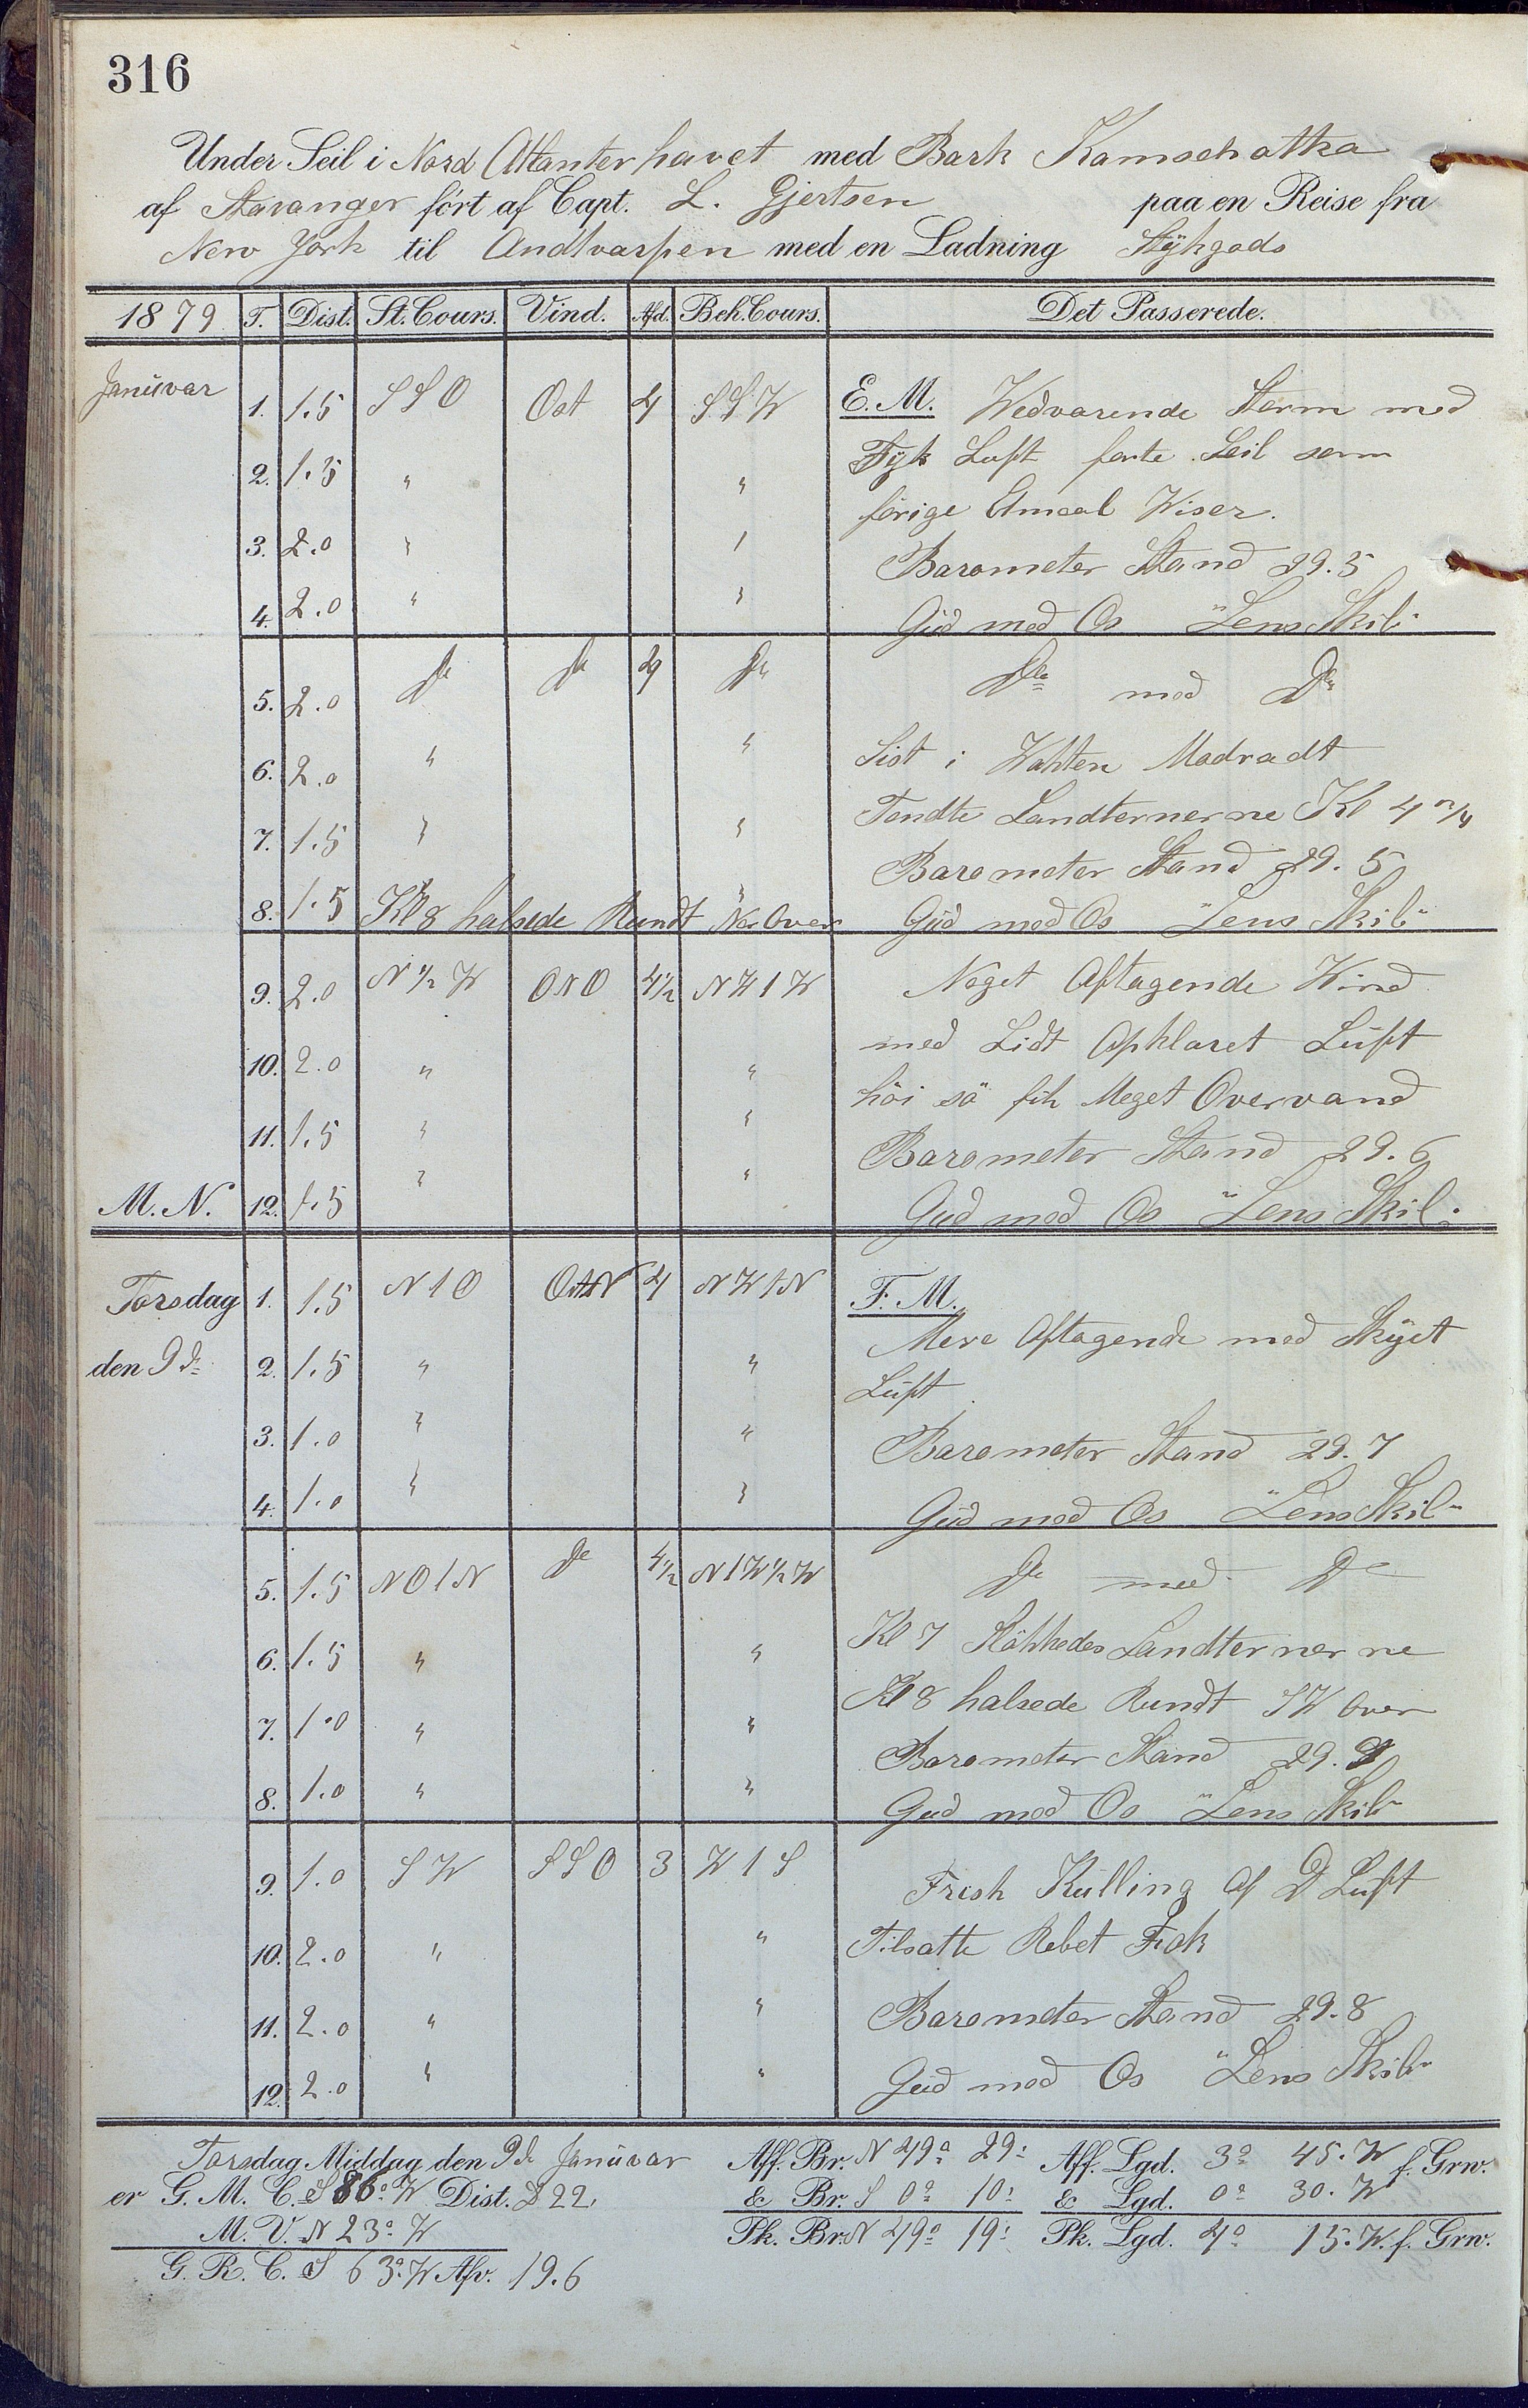 316
Under Seil i Nord Atlanterhavet med Bark Kamschatka
af Stavanger fört af Capt. L. Gjertsen paa en Reise fra
New York til Andtvarpen med en Ladning Stÿkgods
1879 T. Dist. St. Cours. Vind. Afd. Beh. Cours. Det Passerede.
Janüvar 1. 1.5 SSO Ost 4 SSW E. M. Wedvarende Storm med
Tÿk Luft förte Seil som
2. 1.5 " "
förige Etmaal Wiser.
3. 2.0 " "
Barometer Stand 29.5
4. 2.0 " "
Güd med Os "Lens Skib"
5. 2.0 Do Do 4 Do Do med Do
6. 2.0 " " Sist i Wahten Modradt
Tendte Landternerne Kl 4
7. 1.5 " "
Barometer Stand 29.5
8. 1.5 Kl 8 halsede Rundt Nor Over Güd med Os "Lens Skib"
9. 2.0 N 1/2 W ONO 4 1/2 NW 1 W Noget Aftagende Wind
med Lidt Opklaret Lüft
10. 2.0 " "
höi sö fik Meget Overvand
11. 1.5 " "
Barometer Stand 29.6
M. N. 12. 1.5 " " Gud med Os "Lens Skib"
Torsdag 1. 1.5 N 1 O OstN 4 NW 1 N F. M.
Mere Aftagende med Skÿet
den 9de 2. 1.5 " "
Lüft
3. 1.0 " " Barometer Stand 29.7
4. 1.0 " " Güd med Os "Lens Skib"
5. 1.5 NO 1 N Do 4 1/2 N 1 W 1/2 W Do med Do
6. 1.5 " " Kl 7 Slökkedes Landternerne
Kl 8 halsede Rundt SW Over
7. 1.0 " "
Barometer Stand 29.
8. 1.0 " " Gud med Os "Lens Skib"
9. 1.0 SW SSO 3 W 1 S Frish Külling Af D Lüft
10. 2.0 " " Tilsatte Rebet Fok
11. 2.0 " " Barometer Stand 29.8
12. 2.0 " " Güd med Os "Lens Skib"
Torsdag Middag den 9de Janüvar Aff. Br. N 49° 29' Aff. Lgd. 3° 45' W f. Grw.
er G. M. C. S 86° W Dist. D 22, & Br. S 0° 10' & Lgd. 0° 30' W
M. V. N 23° W Pk. Br. N 49° 19' Pk. Lgd. 4° 15' W. f. Grw.
G. R. C. S 63° W Afv. 19.6